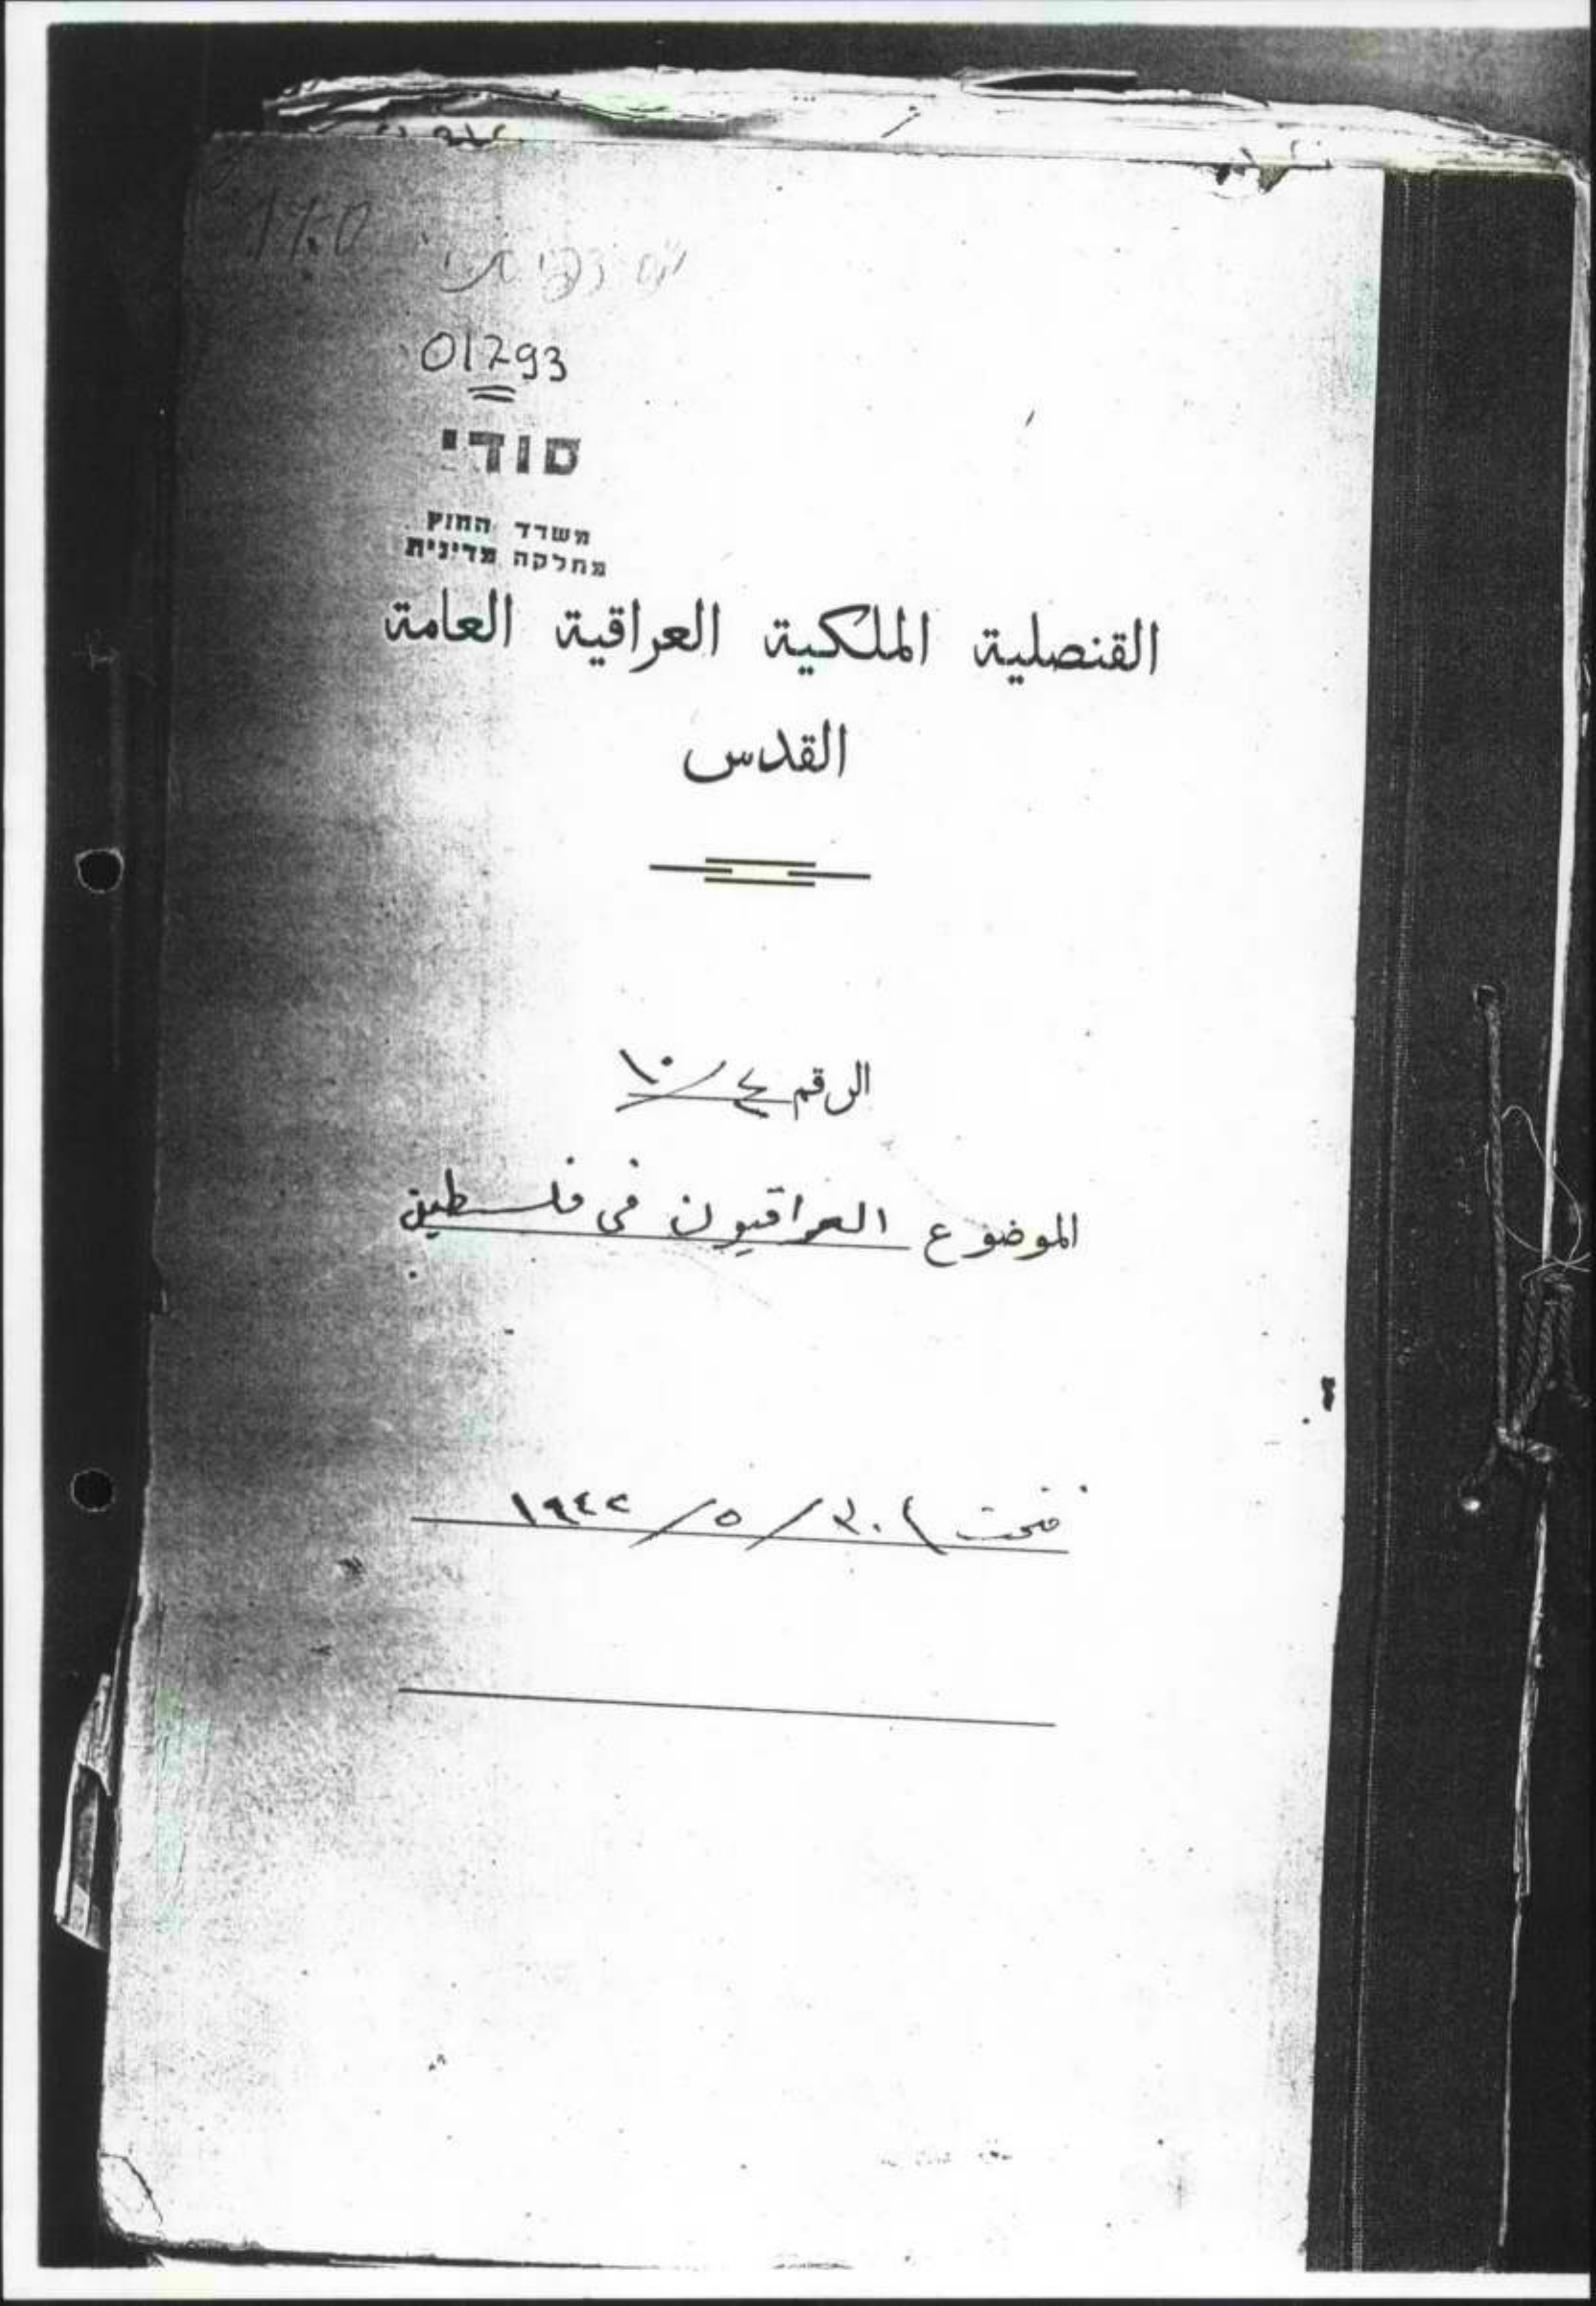 01793
סודי
משרד החוץ
מחלקה מדינית
القنصلية الملكية العراقية العامة
القدس
الرقم ٤/١٠
الموضوع العراقيون في فلسطين
فتحت ٣٠/٥/١٩٤٢